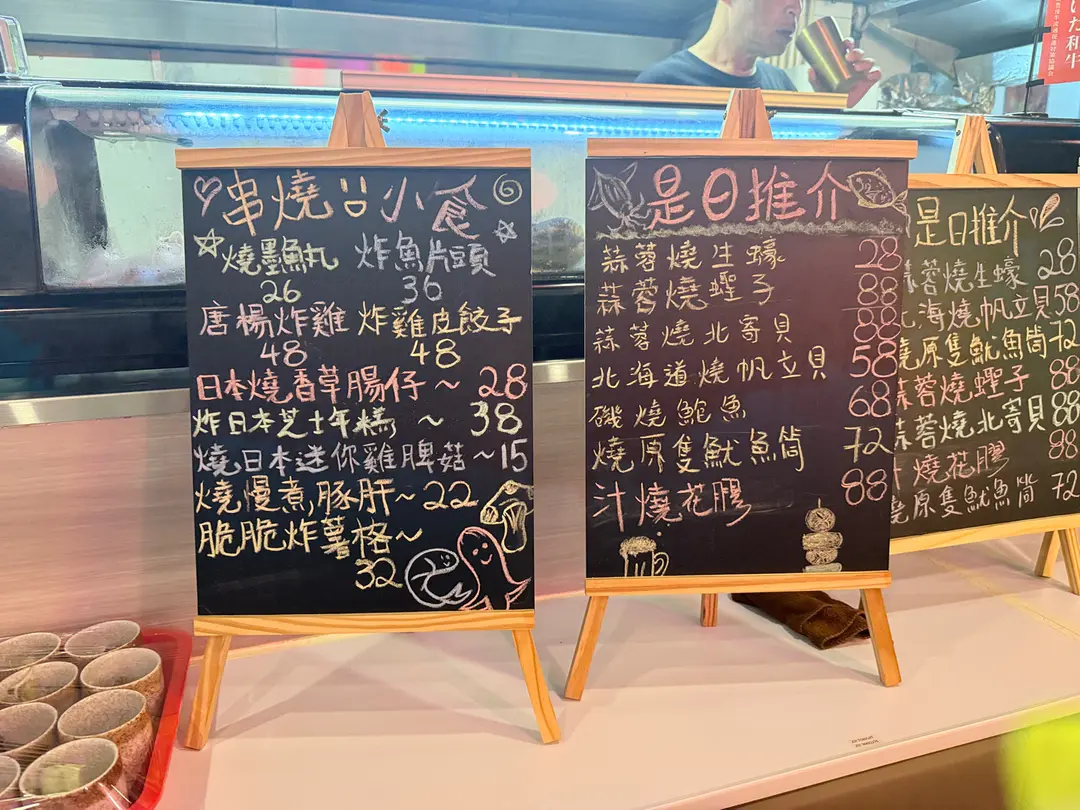 串燒 小食
燒墨魚丸 炸魚片頭
26 36
唐楊炸雞 炸雞皮餃子
48 48
日本燒香草腸仔～ 28
炸日本芝士年糕 ～ 38
燒日本迷你雞脾菇～15
燒慢煮豚肝～22
脆脆炸薯格～
32
是日推介
蒜蓉燒生蠔 28
蒜蓉燒蟶子 88
蒜蓉燒北寄貝 88
北海道燒帆立貝 58
磯燒鮑魚 68
燒原隻魷魚筒 72
汁燒花膠 88
是日推介
蒜蓉燒生蠔 28
北海燒帆立貝58
燒原隻魷魚筒72
蒜蓉燒蟶子 88
蒜蓉燒北寄貝88
汁燒花膠 88
燒原隻魷魚筒 72
た和牛